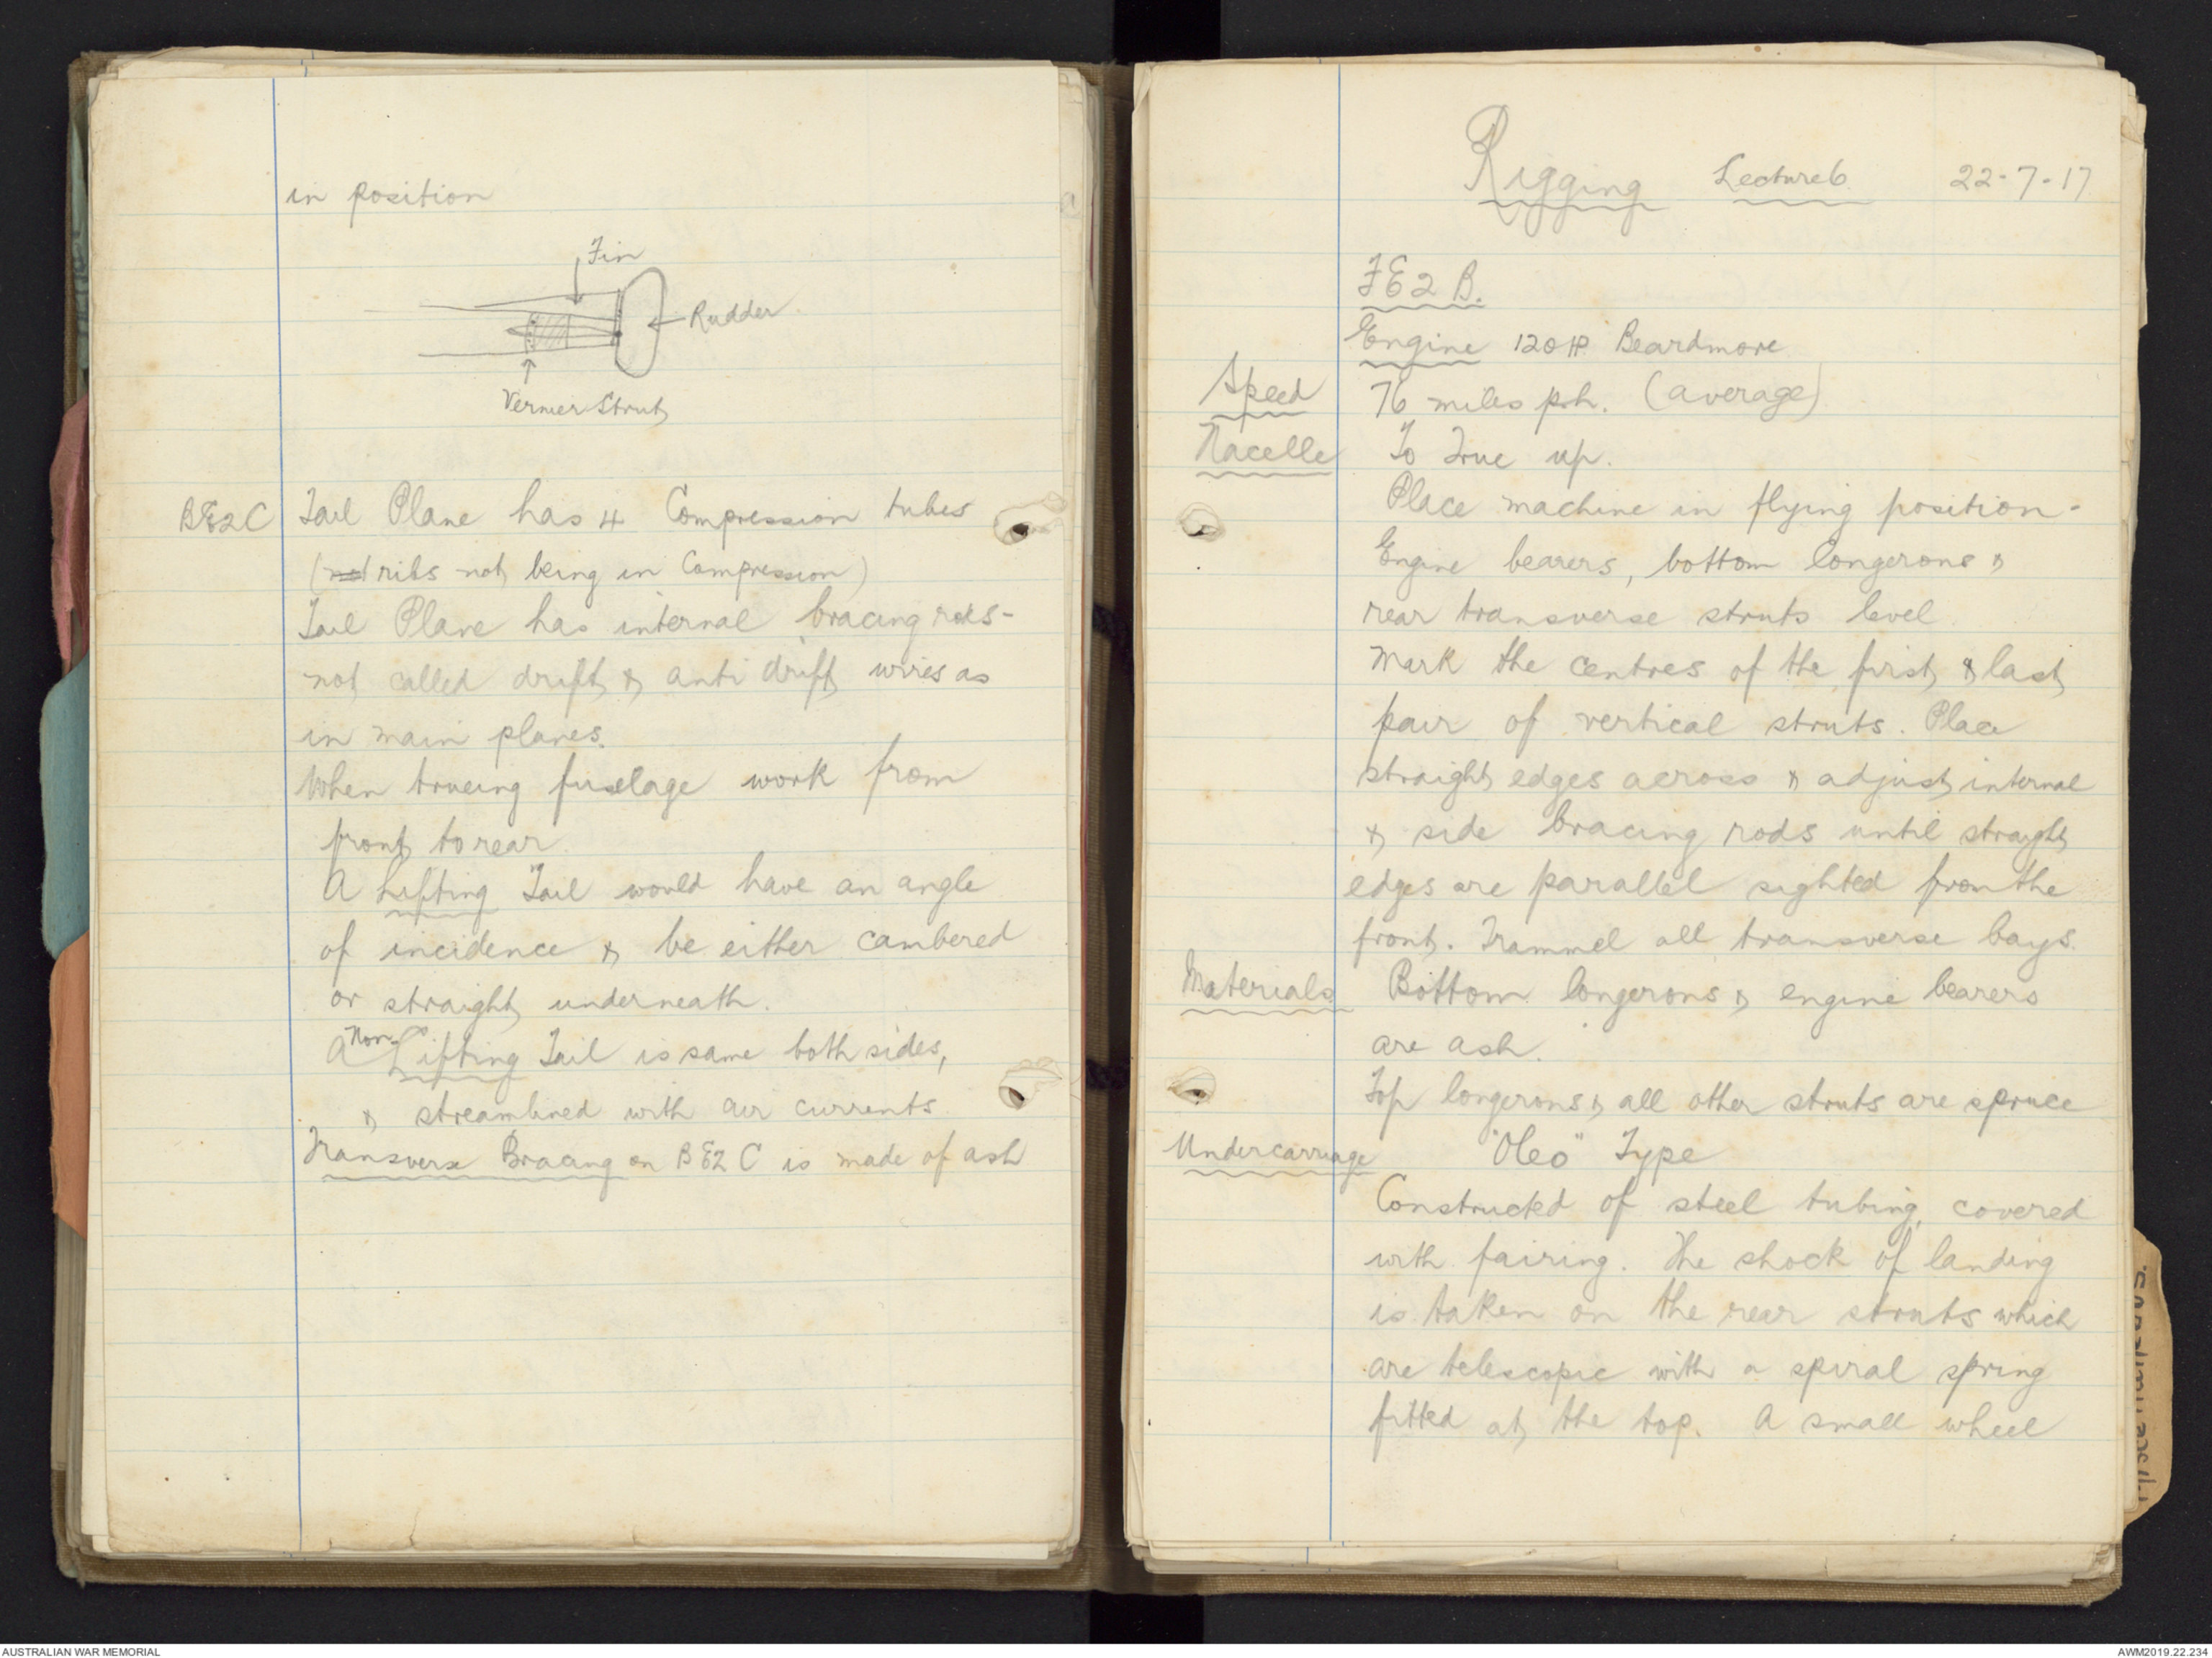 in position
Fin
Rudder
Vernier Strut
BE2C Tail Plane has 4 Compression tubes
(not ribs not being in Compression)
Tail Plane has internal bracing rods -
not called drift & anti drift wires as
in main planes.
When trueing fuselage work from
front to rear.
A Lifting Tail would have an angle
of incidence & be either cambered
or straight underneath.
A Non-Lifting Tail is same both sides,
& streamlined with air currents
Transverse Bracing on BE2C is made of ash
Rigging Lecture 6 22-7-17
FE2B.
Engine 120 HP Beardmore
Speed 76 miles p.h. (average)
Nacelle To True up.
Place machine in flying position -
Engine bearers, bottom longerons &
rear transverse struts level
Mark the centres of the first & last
pair of vertical struts. Place
straight edges across & adjust internal
& side bracing rods until straight
edges are parallel sighted from the
front. Trammel all transverse bays.
Materials Bottom longerons & engine bearers
are ash.
Top longerons & all other struts are spruce
Undercarriage "Oleo" Type
Constructed of steel tubing, covered
with fairing. The shock of landing
is taken on the rear struts which
are telescopic with a spiral spring
fitted at the top. A small wheel
AUSTRALIAN WAR MEMORIAL
AWM2019.22.234